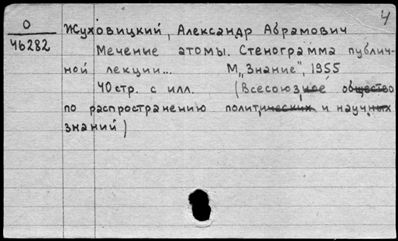 4
О
46282
Жуховицкий, Александр Абрамович
Мечение атомы. Стенограмма публич-
ной лекции... М, „Знание", 1955
40 стр. с илл. (Всесоюзное общество
по распространению политических и научных
знаний)